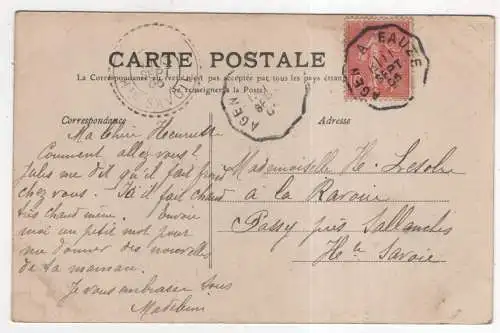 CARTE POSTALE
La Correspondance au recto n'est pas acceptée par tous les pays étrangers
(Se renseigner à la Poste)
AGEN A EAUZE
11
SEPT
05
AGEN
SEPT
Correspondance
Adresse
Ma chère Henriette
Comment allez vous ?
Jules me dit qu'il fait froid
chez vous. Ici il fait chaud
très chaud même. Envoie
moi un petit mot pour
me donner des nouvelles
de ta maman.
Je vous embrasse tous
Madeleine
Mademoiselle H.
à la Ravoire
Passy près Sallanches
Hte Savoie